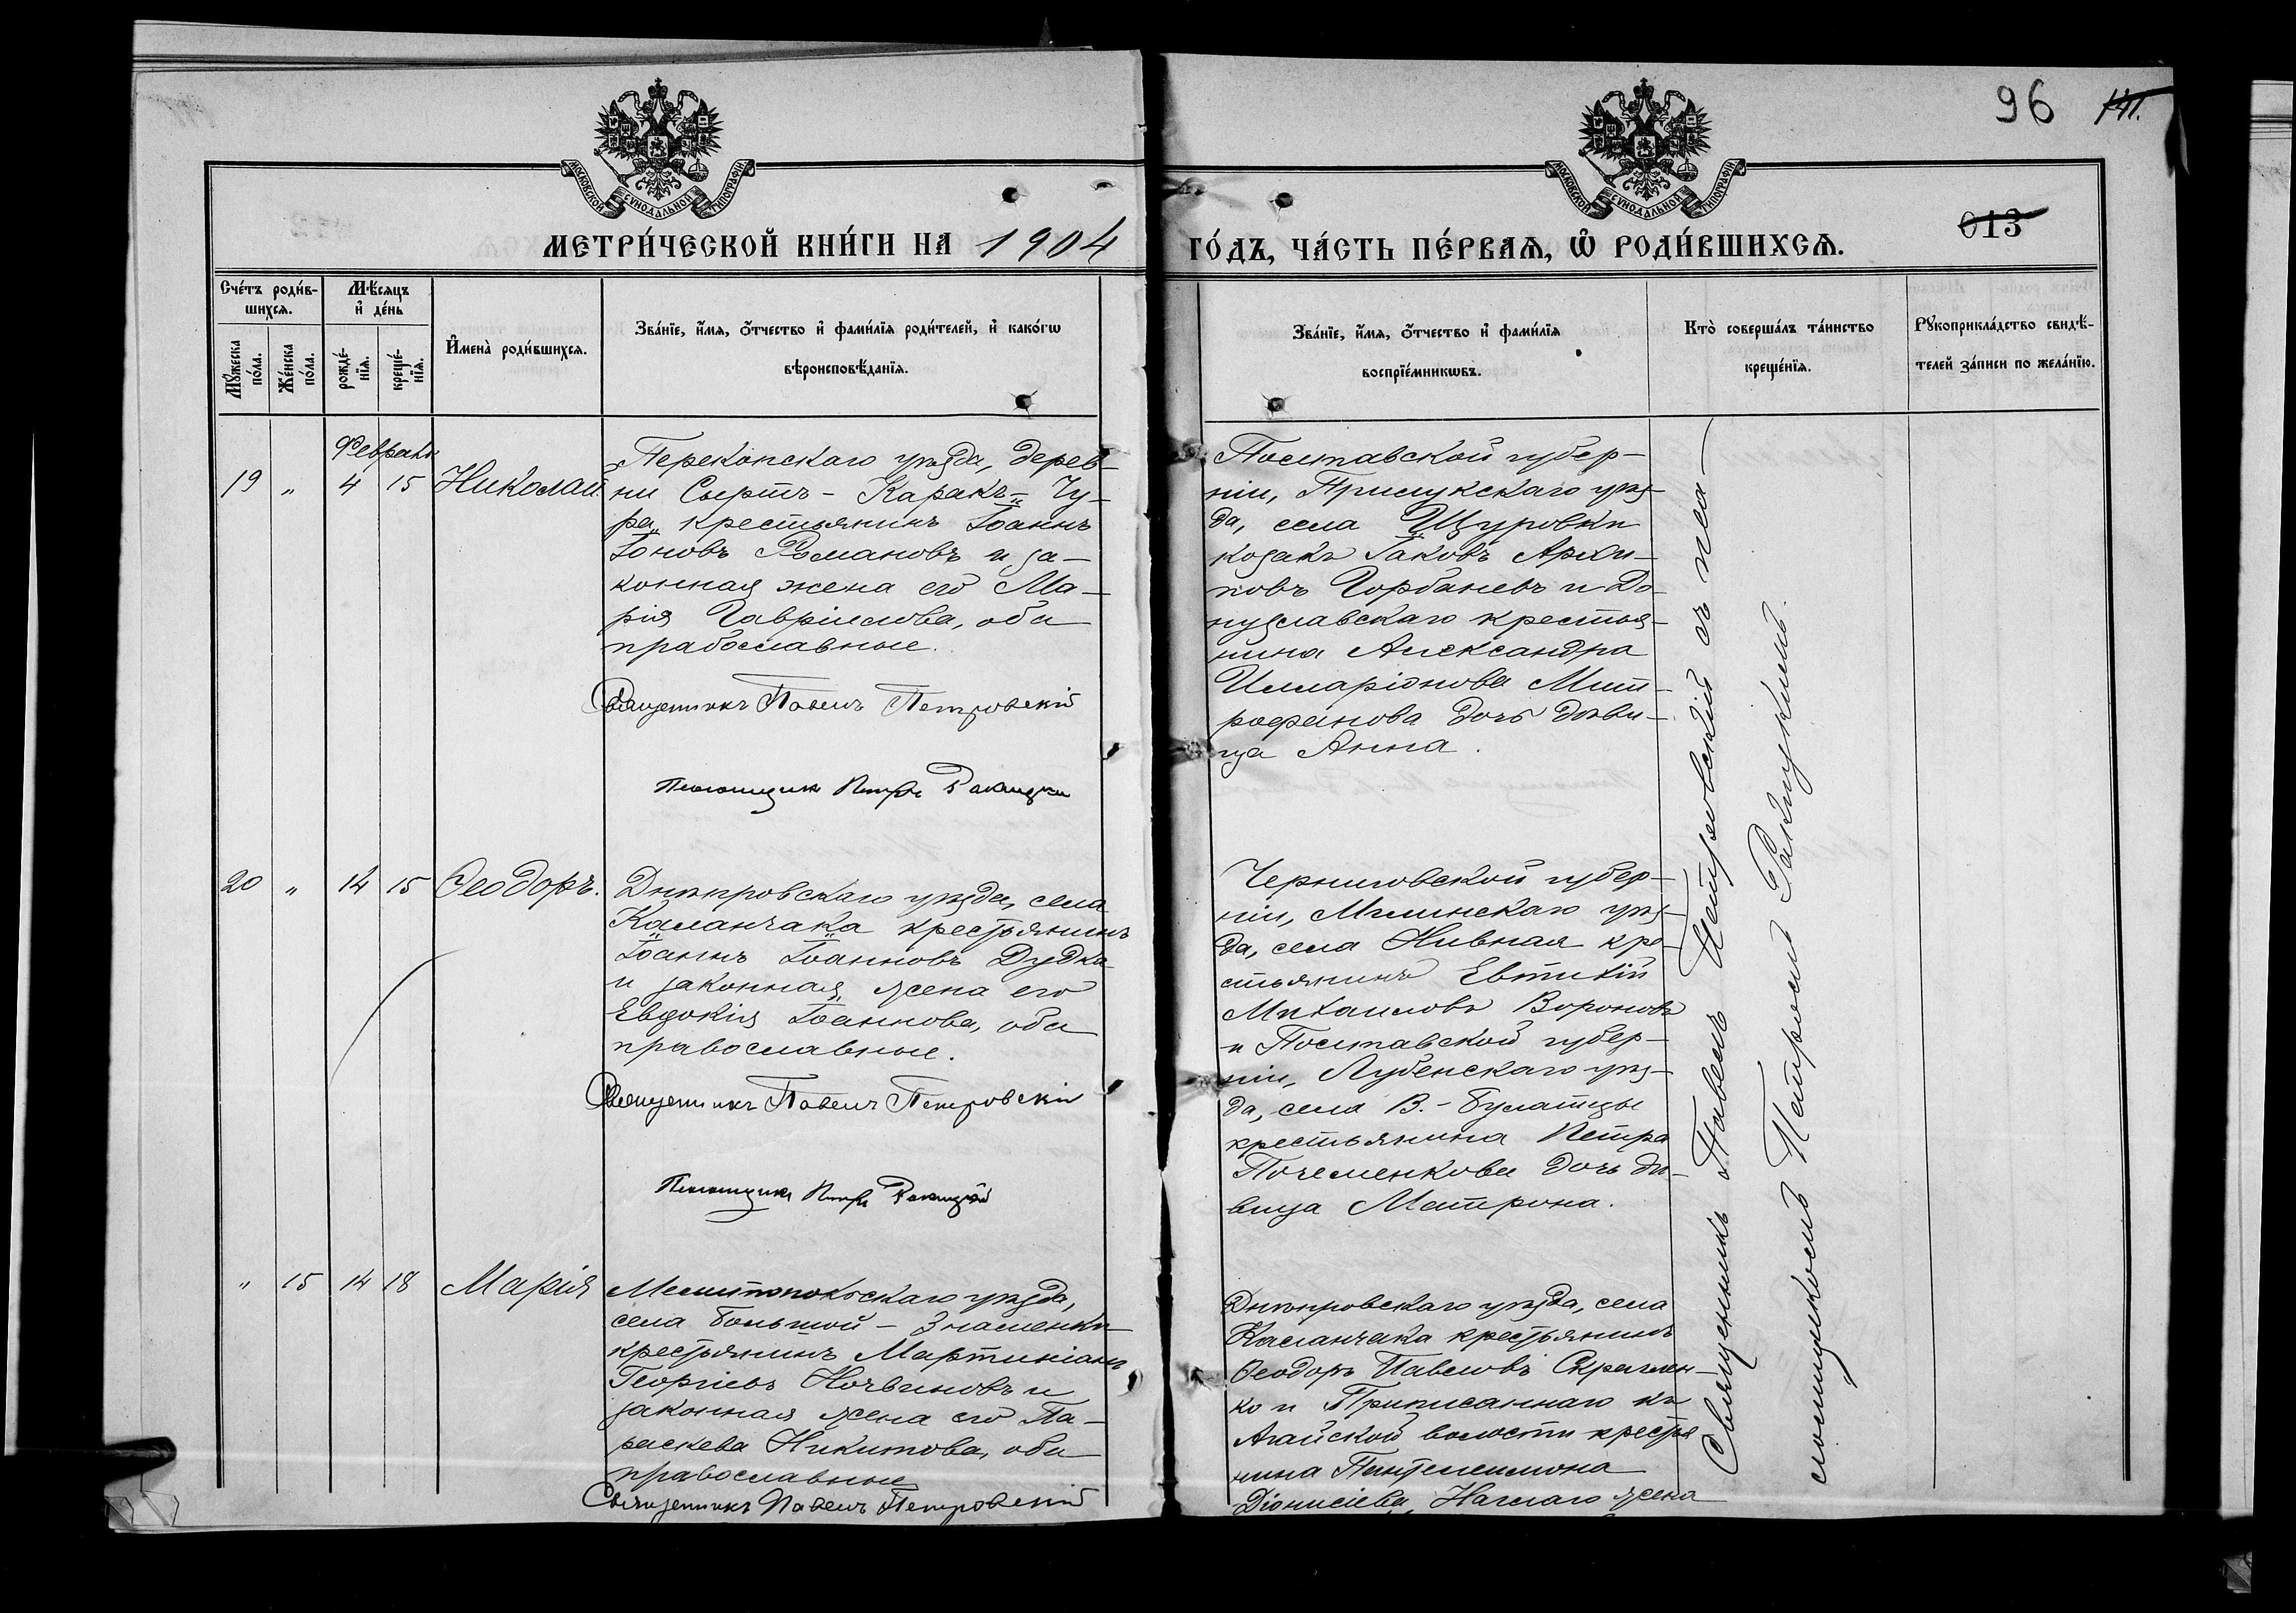 96 141.
МОСКОВСКОЙ СУНОДАЛЬНОЙ ТИПОГРАФІИ
МОСКОВСКОЙ СУНОДАЛЬНОЙ ТИПОГРАФІИ
013
МЕТРИ́ЧЕСКОЙ КНИ́ГИ НА 1904
ГО́ДЪ, ЧА́СТЬ ПЕ́РВАЯ, Ѡ҆ РОДИ́ВШИХСЯ.
Сче́тъ роди́в-
шихся.
Мѣ́сяцъ
и҆ де́нь
Мꙋ́жеска
по́ла.
Же́нска
по́ла.
рожде́-
нїя.
креще́-
нїя.
И҆мена̀ роди́вшихся.
Зва́нїе, и҆́мя, ѻ҆́тчество и҆ фами́лїя роди́телей, и҆ како́гѡ
вѣроисповѣ́данїя.
Зва́нїе, и҆́мя, ѻ҆́тчество и҆ фами́лїя
воспрїе́мникѡвъ.
Кто̀ соверша́лъ та́инство
креще́нїя.
Рꙋкоприкла́дство свидѣ́-
телей за́писи по жела́нїю.
Февраль
19 " 4 15 Николай
Перекопскаго уѣзда, дерев-
ни Сыртъ - Каракъ - Чу-
ра крестьянинъ Іоаннъ
Іоновъ Романовъ и за-
конная жена его Ма-
рія Гавріилова, оба
православные.
Священникъ Павелъ Петровскій
Псаломщикъ Петръ Ракицкій
Полтавской губер-
ніи, Прилукскаго уѣз-
да, села Щуровки
козакъ Іаковъ Архи-
повъ Горбаневъ и До-
нузлавскаго крестья-
нина Александра
Илларіонова Мит-
рофанова дочь дѣви-
ца Анна.
20 " 14 15 Ѳеодоръ.
Днѣпровскаго уѣзда, села
Каланчака крестьянинъ
Іоаннъ Іоанновъ Дудка
и законная жена его
Евдокія Іоаннова, оба
православные.
Священникъ Павелъ Петровскій
Псаломщикъ Петръ Ракицкій
Черниговской губер-
ніи, Мглинскаго уѣз-
да, села Нивная кре-
стьянинъ Евтихій
Михаиловъ Вороновъ
и Полтавской губер-
ніи, Лубенскаго уѣз-
да, села В. - Булатцы
крестьянина Петра
дочь дѣ-
вица Матрона.
" 15 14 18 Марія
Мелитопольскаго уѣзда,
села Большой - Знаменки
крестьянинъ Мартиніанъ
Георгіевъ и
законная жена его Па-
раскева Никитова, оба
православные
Священникъ Павелъ Петровскій
Днѣпровскаго уѣзда, села
Каланчака крестьянинъ
Ѳеодоръ Павловъ
ко и Приписаннаго къ
Агайской волости крестья
нина Пантелеимона
Діонисіева, жена
Священникъ Павелъ Петровскій съ пса-
ломщикомъ Петромъ Ракицкимъ.